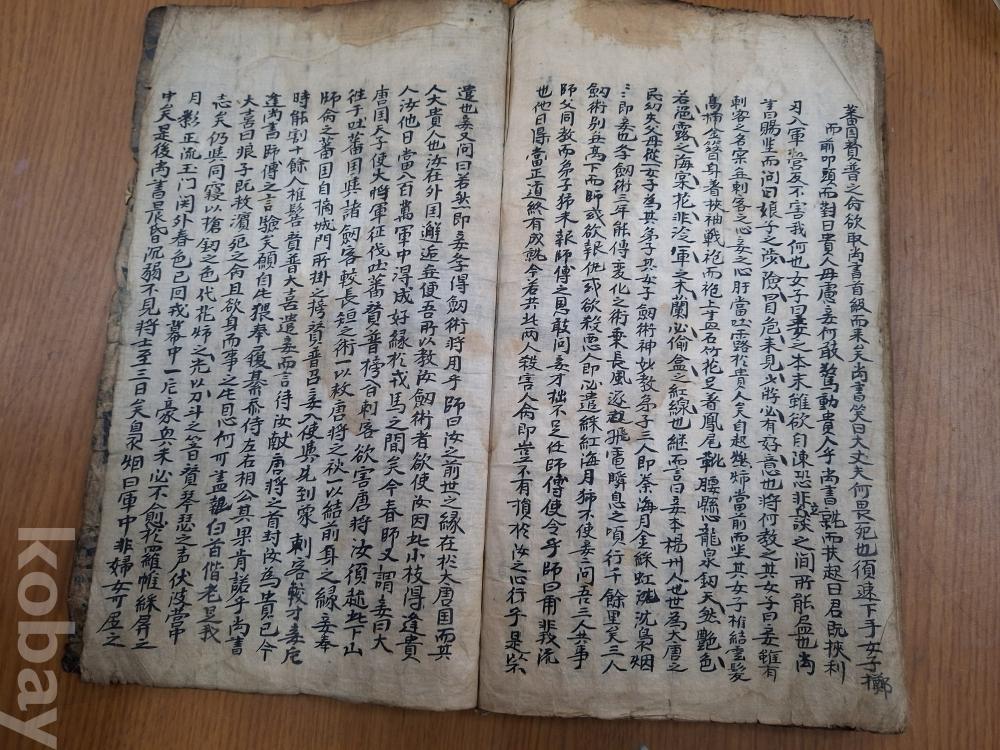 蕃国賛普之命欲取尚書首級而来矣尚書笑曰大丈夫何畏死也須速下手女子擲
而前叩頭而對曰貴人毋慮妾何敢驚動貴人乎尚書就而扶起曰君旣挾利
刃入軍營反不害我何也女子曰妾之本末雖欲自陳恐非立談之間所能盡也尚
書曰賜坐而问曰娘子之涉險冒危来見少將必有好意也將何教之其女子曰妾雖有
刺客之名案無刺客之心妾之心肝當吐露於貴人矣自起燃燭當前而坐其女子椎結雲髮
高揷金簪身着挾袖戰袍而袍上畫石竹花足着鳳尾靴腰懸龍泉釼天然艶色
若浥露之海棠花非泠軍之木蘭必偷盒之紅線也継而言曰妾本楊州人也世為大唐之
民幼失父母從一女子為其弟子其女子釼術神妙教弟子三人即秦海月金綵虹沈鳥烟
三即妾也孝釼術三年能傳変化之術乗長風逐飛電瞬息之頃行千餘里矣三人
釼術別無高下而師或欲報仇或欲殺悪人即必遣綵紅海月獅不使妾三问吾三人共事
師父同教而弟子獅未報師傅之恩敢问妾才拙不足任師傅使令乎師曰甭非我流
也他日得當正道終有成就今若共此两人殺害人命即豈不有損於汝之心行乎是以
遣也妾又问曰若然即妾孝得釼術將用乎師曰汝之前世之緣在於大唐国而其
人大貴人也汝在外国邂逅無便吾所以教汝釼術者欲使汝因此小枝得逢貴
人汝他日當入百萬軍中得成好縁於戎馬之間矣今春師又謂妾曰大
唐国天子使大將軍征伐吐蕃賛普榜召刺客欲害唐將汝須趂此下山
徃于吐蕃国與諸釼客較長短之術一以救唐將之禍一以結前身之緣妾奉
師命之蕃国自摘城門所掛之榜賛普召妾入使與先到衆刺客較才妾
時能割十餘人椎髻賛普大喜遣妾而言待汝献唐將之首封汝為貴妃今
逢尚書師傅之言驗矣願自此猥奉履綦忝侍左右相公其果肯諾乎尚書
大喜曰娘子旣救濱死之命且欲身而事之此恩何可盡報白首偕老是我
志矣仍與同寢以槍釼之色代花燭之光以刀斗之響替琴瑟之声伏波營中
月影正流玉门関外春色已回戎幕中一片豪興未必不愈於羅帷綵屛之
中矣是後尚書晨昏沉溺不見將士至三日矣鳥烟曰軍中非婦女可居之
kobay